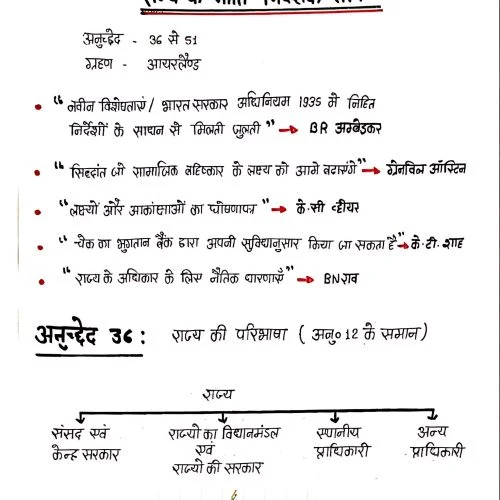 राज्य के नीति निदेशक तत्व
अनुच्छेद - 36 से 51
ग्रहण - आयरलैण्ड
• "नवीन विशेषताएं / भारत सरकार अधिनियम 1935 में निहित
निर्देशों के साधन से मिलती जुलती" → BR अम्बेडकर
• "सिद्धांत जो सामाजिक बहिष्कार के लक्ष्य को आगे बढ़ाएंगे" → ग्रेनविल ऑस्टिन
• "लक्ष्यों और आकांक्षाओं का घोषणापत्र" → के.सी व्हीयर
• "चेक का भुगतान बैंक द्वारा अपनी सुविधानुसार किया जा सकता है" → के.टी.शाह
• "राज्य के अधिकार के लिए नैतिक धारणाएँ" → BN राव
अनुच्छेद 36 : राज्य की परिभाषा ( अनु० 12 के समान )
राज्य
संसद एवं केन्द्र सरकार
राज्यो का विधानमंडल एवं राज्यो की सरकार
स्थानीय प्राधिकारी
अन्य प्राधिकारी